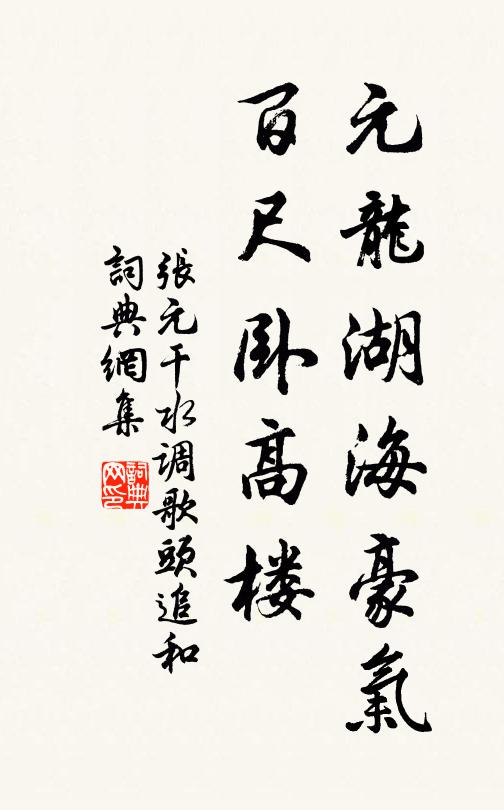 元龍湖海豪氣
百尺卧高楼
張元干水调歌頭追和
詞典網集
詞典网印